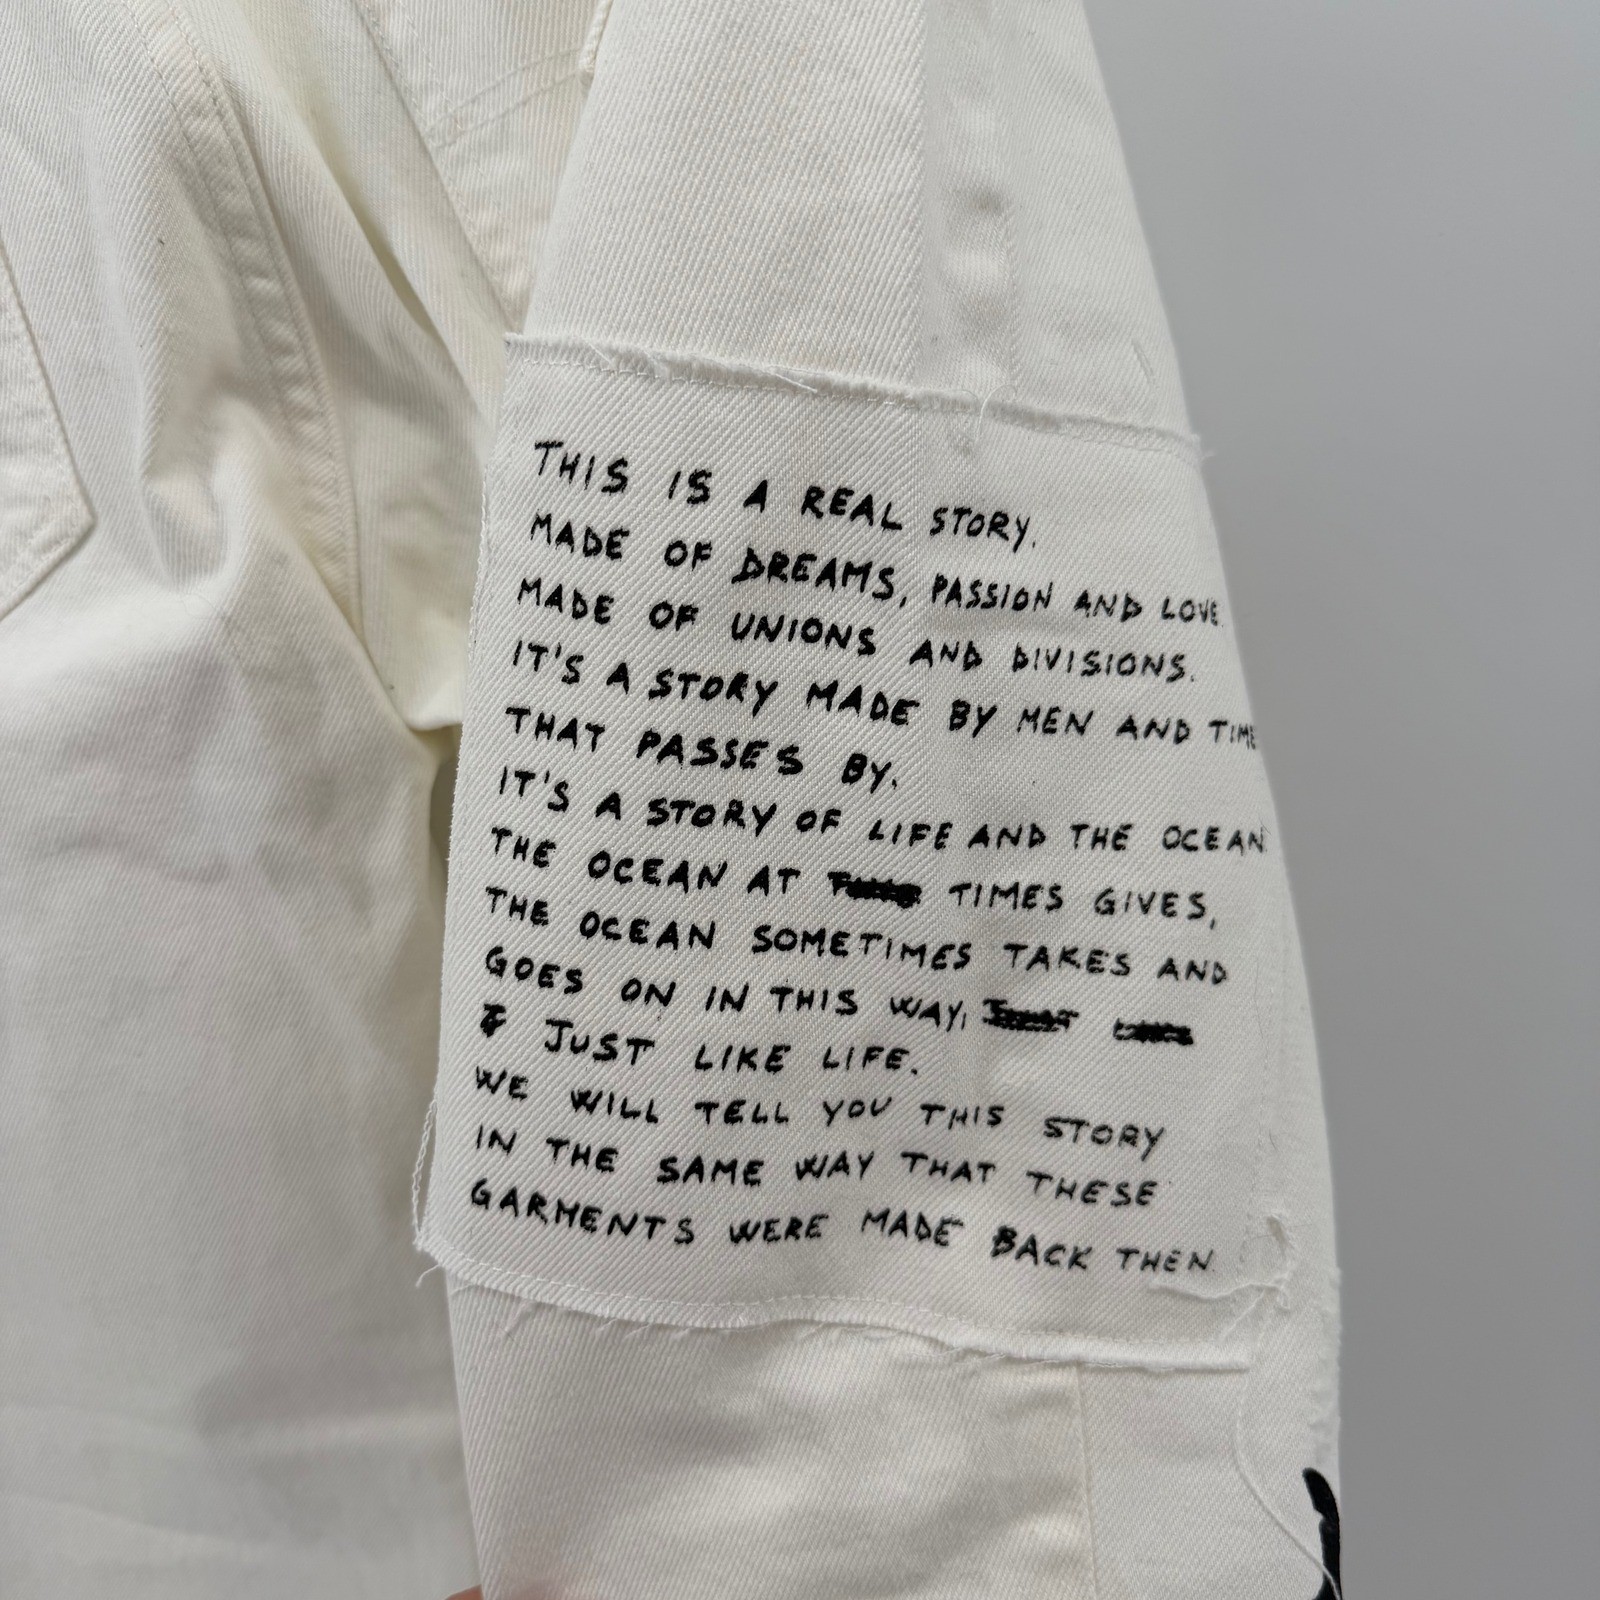 THIS IS A REAL STORY.
MADE OF DREAMS, PASSION AND LOVE.
MADE OF UNIONS AND DIVISIONS.
IT'S A STORY MADE BY MEN AND TIME
THAT PASSES BY.
IT'S A STORY OF LIFE AND THE OCEAN.
THE OCEAN AT TIMES GIVES,
THE OCEAN SOMETIMES TAKES AND
GOES ON IN THIS WAY,
JUST LIKE LIFE.
WE WILL TELL YOU THIS STORY
IN THE SAME WAY THAT THESE
GARMENTS WERE MADE BACK THEN.